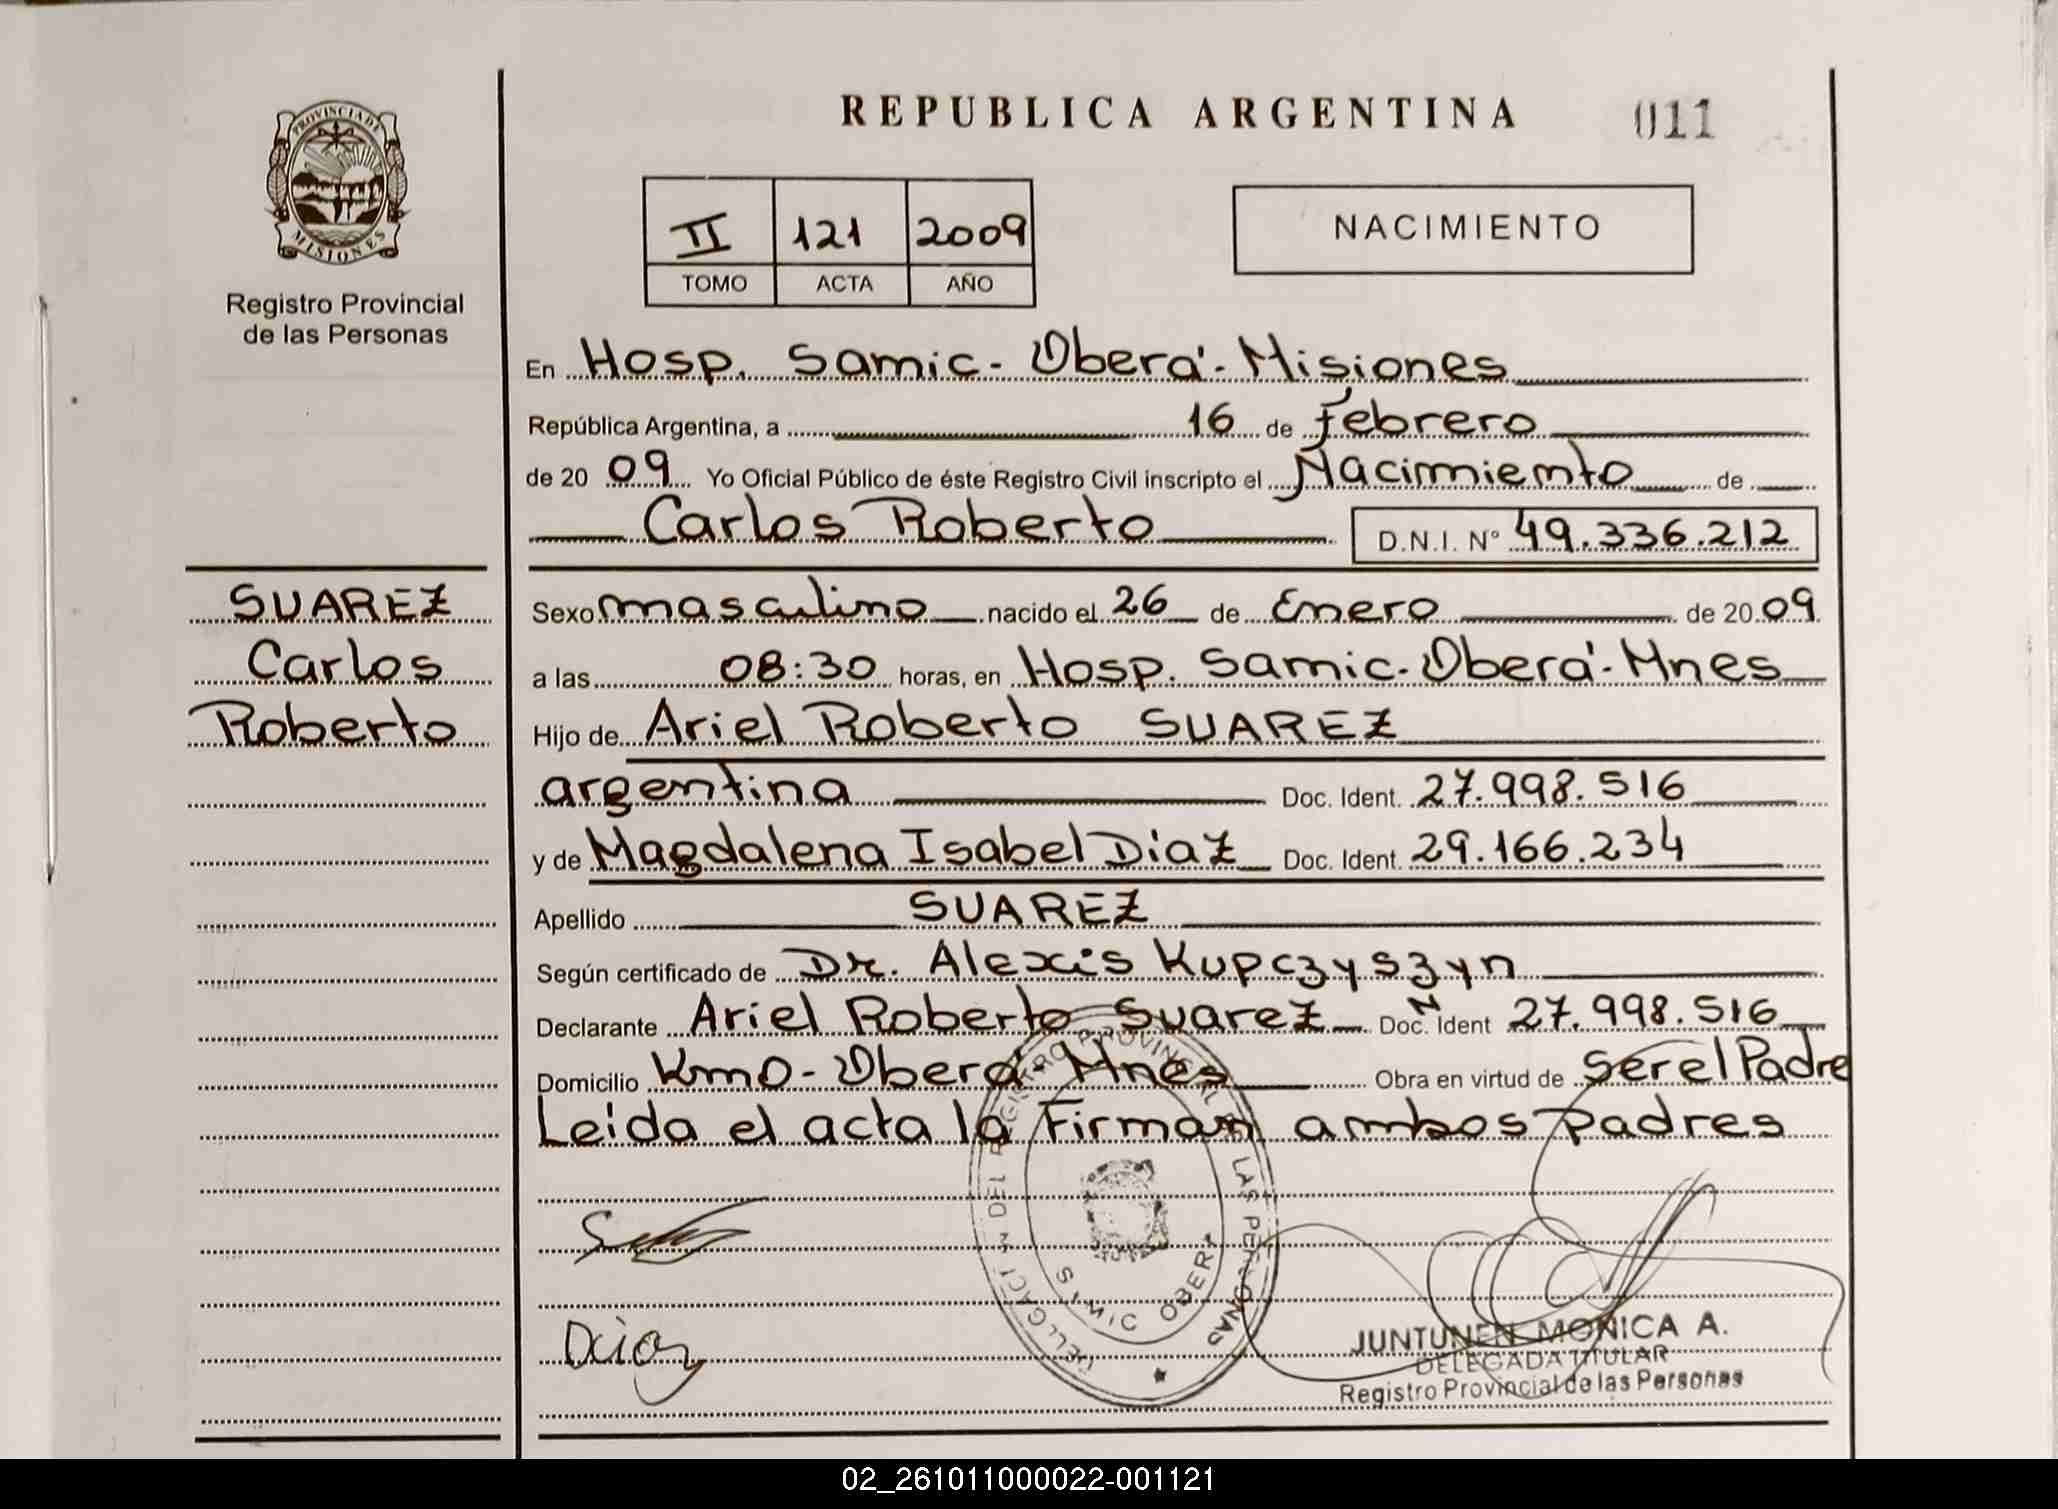 REPUBLICA ARGENTINA 011
PROVINCIA DE
MISIONES
Registro Provincial
de las Personas
II 121 2009
TOMO ACTA AÑO
NACIMIENTO
En Hosp. Samic - Oberá - Misiones
República Argentina, a 16 de Febrero
de 20 09 Yo Oficial Público de éste Registro Civil inscripto el Nacimiento de
Carlos Roberto D.N.I. N° 49.336.212
SUAREZ
Carlos
Roberto
Sexo masculino nacido el 26 de Enero de 20 09
a las 08:30 horas, en Hosp. Samic - Oberá - Mnes
Hijo de Ariel Roberto SUAREZ
argentina Doc. Ident. 27.998.516
y de Magdalena Isabel Diaz Doc. Ident. 29.166.234
Apellido SUAREZ
Según certificado de Dr. Alexis Kupczyszyn
Declarante Ariel Roberto Suarez Doc. Ident 27.998.516
Domicilio Km0 - Oberá Mnes Obra en virtud de Ser el Padre
Leida el acta la Firman ambos padres
DEL REGISTRO PROVINCIAL DE LAS PERSONAS
SAMIC OBERA
Diaz
JUNTUNEN MONICA A.
DELEGADA TITULAR
Registro Provincial de las Personas
02_261011000022-001121